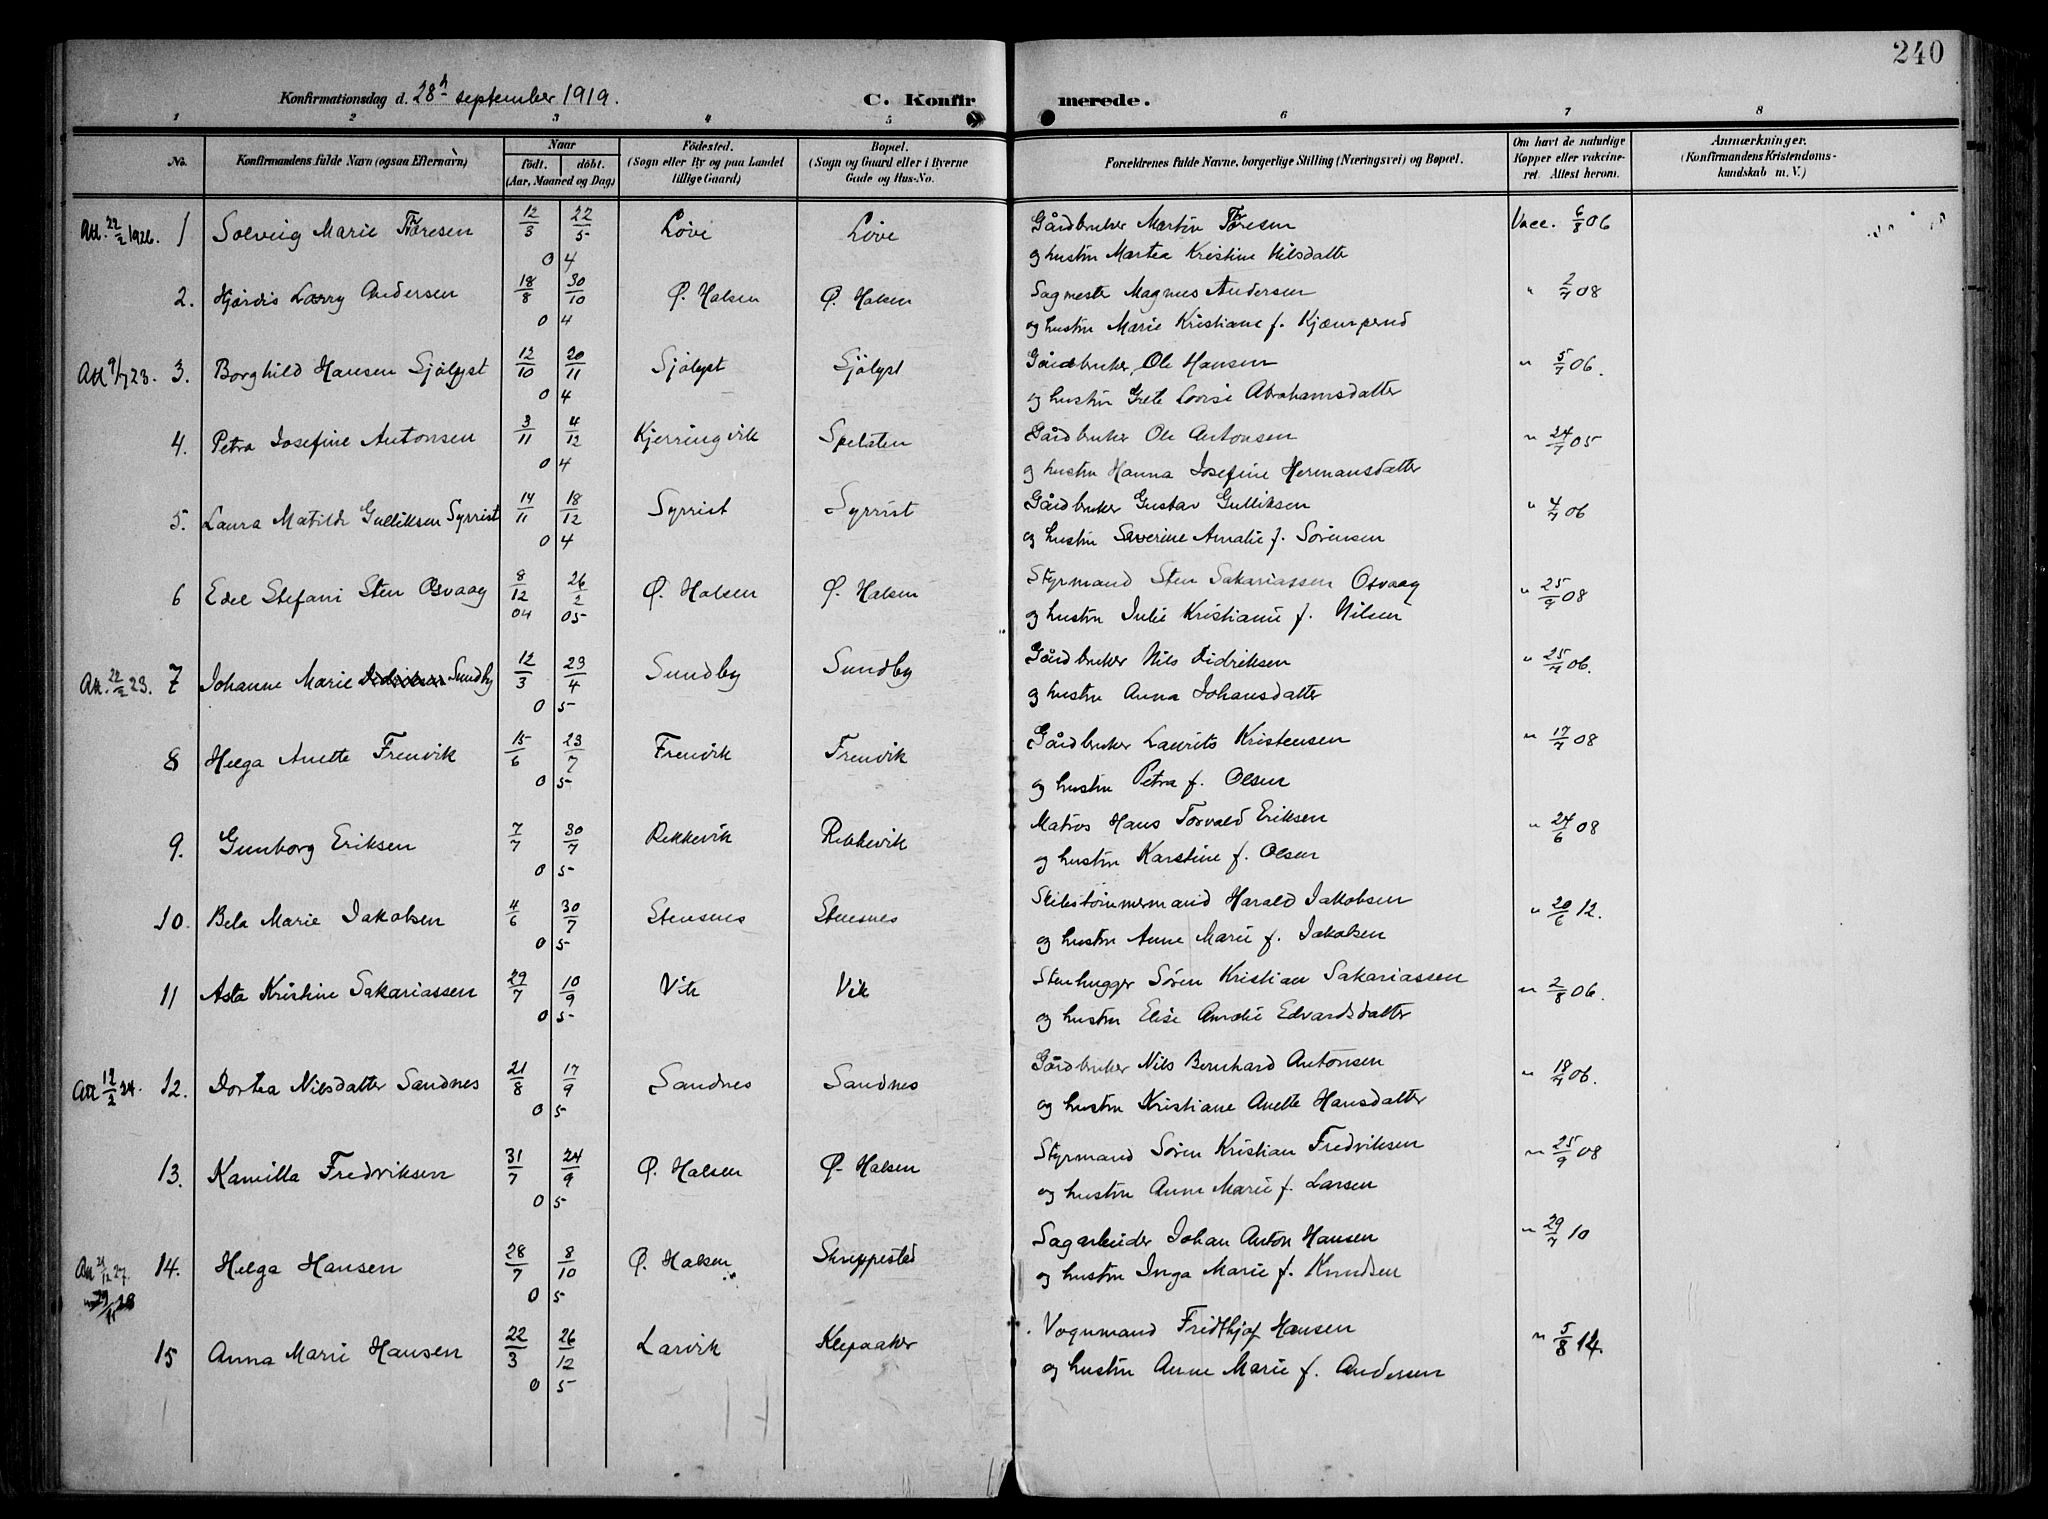 240
Konfirmationsdag d. 28de september 1919.
C. Konfirmerede.
1 2 3 4 5 6 7 8
No.
Konfirmandens fulde Navn (ogsaa Efternavn)
Naar
födt. döbt.
(Aar, Maaned og Dag)
Födested.
(Sogn eller By og paa Landet
tillige Gaard)
Bopæl.
(Sogn og Gaard eller i Byerne
Gade og Hus-No.
Forældrenes fulde Navne, borgerlige Stilling (Næringsvei) og Bopæl.
Om havt de naturlige
Kopper eller vakcine-
ret. Attest herom.
Anmærkninger.
(Konfirmandens Kristendoms-
kundskab m. V.)
Att. 22/2 1926. 1 Solveig Marie Thoresen 12/3 22/5 Løve Løve Gårdbruker Martin Thoresen Vacc. 6/8 06
04 og hustru Martea Kristine Nilsdatter
2. Hjørdis Larry Andersen 18/8 30/10 Ø. Halsen Ø. Halsen Sagmester Magnus Andersen " 2/7 08
04 og hustru Marie Kristiane f. Kjæmperud
Att 9/7 23. 3. Borghild Hansen Sjølyst 12/10 20/11 Sjølyst Sjølyst Gårdbruker Ole Hansen " 5/7 06.
04 og hustru Grete Lovise Abrahamsdatter
4. Petra Josefine Antonsen 3/11 4/12 Kjerringvik Spelsten Gårdbruker Ole Antonsen " 24/7 05
04 og hustru Hanna Josefine Hermansdatter
5. Laura Matilde Gulliksen Syrrist 14/11 18/12 Syrrist Syrrist Gårdbruker Gustav Gulliksen " 4/7 06
04 og hustru Severine Amalie f. Sørensen
6 Edel Stefani Sten Osvaag 8/12 04 26/2 05 Ø. Halsen Ø. Halsen Styrmand Sten Sakariassen Osvaag " 25/9 08
og hustru Julie Kristiane f. Nilsen
Att. 22/2 23. 7 Johanne Marie Didriksen Sundby 12/3 23/4 Sundby Sundby Gårdbruker Nils Didriksen " 25/7 06.
05 og hustru Anna Johansdatter
8 Helga Anette Frenvik 15/6 23/7 Frenvik Frenvik Gårdbruker Laurits Kristensen " 17/7 08
05 og hustru Petra f. Olsen
9. Gunborg Eriksen 7/7 30/7 Rekkevik Rekkevik Matros Hans Torvald Eriksen " 24/6 08
05 og hustru Karstine f. Olsen
10. Bela Marie Jakobsen 4/6 30/7 Stensnes Stensnes Skibstømmermand Harald Jakobsen " 20/6 12.
05 og hustru Anne Marie f. Jakobsen
11 Asta Kristine Sakariassen 29/7 10/9 Vik Vik Stenhugger Søren Kristian Sakariassen " 2/8 06.
05 og hustru Elise Amalie Edvardsdatter
Att 12/2 24. 12. Dortea Nilsdatter Sandnes 21/8 17/9 Sandnes Sandnes Gårdbruker Nils Bernhard Antonsen " 18/7 06.
05 og hustru Kristiane Anette Hansdatter
13. Kamilla Fredriksen 31/7 24/9 Ø. Halsen Ø. Halsen Styrmand Søren Kristian Fredriksen " 25/9 08
05 og hustru Anne Marie f. Larsen
14. Helga Hansen 28/7 8/10 Ø. Halsen Skreppestad Sagarbeider Johan Anton Hansen " 29/7 10
05 og hustru Inga Marie f. Knudsen
15 Anna Marie Hansen 22/3 26/12 Larvik Klepaaker Vognmand Fridthjof Hansen " 5/8 14.
05 og hustru Anne Marie f. Andersen